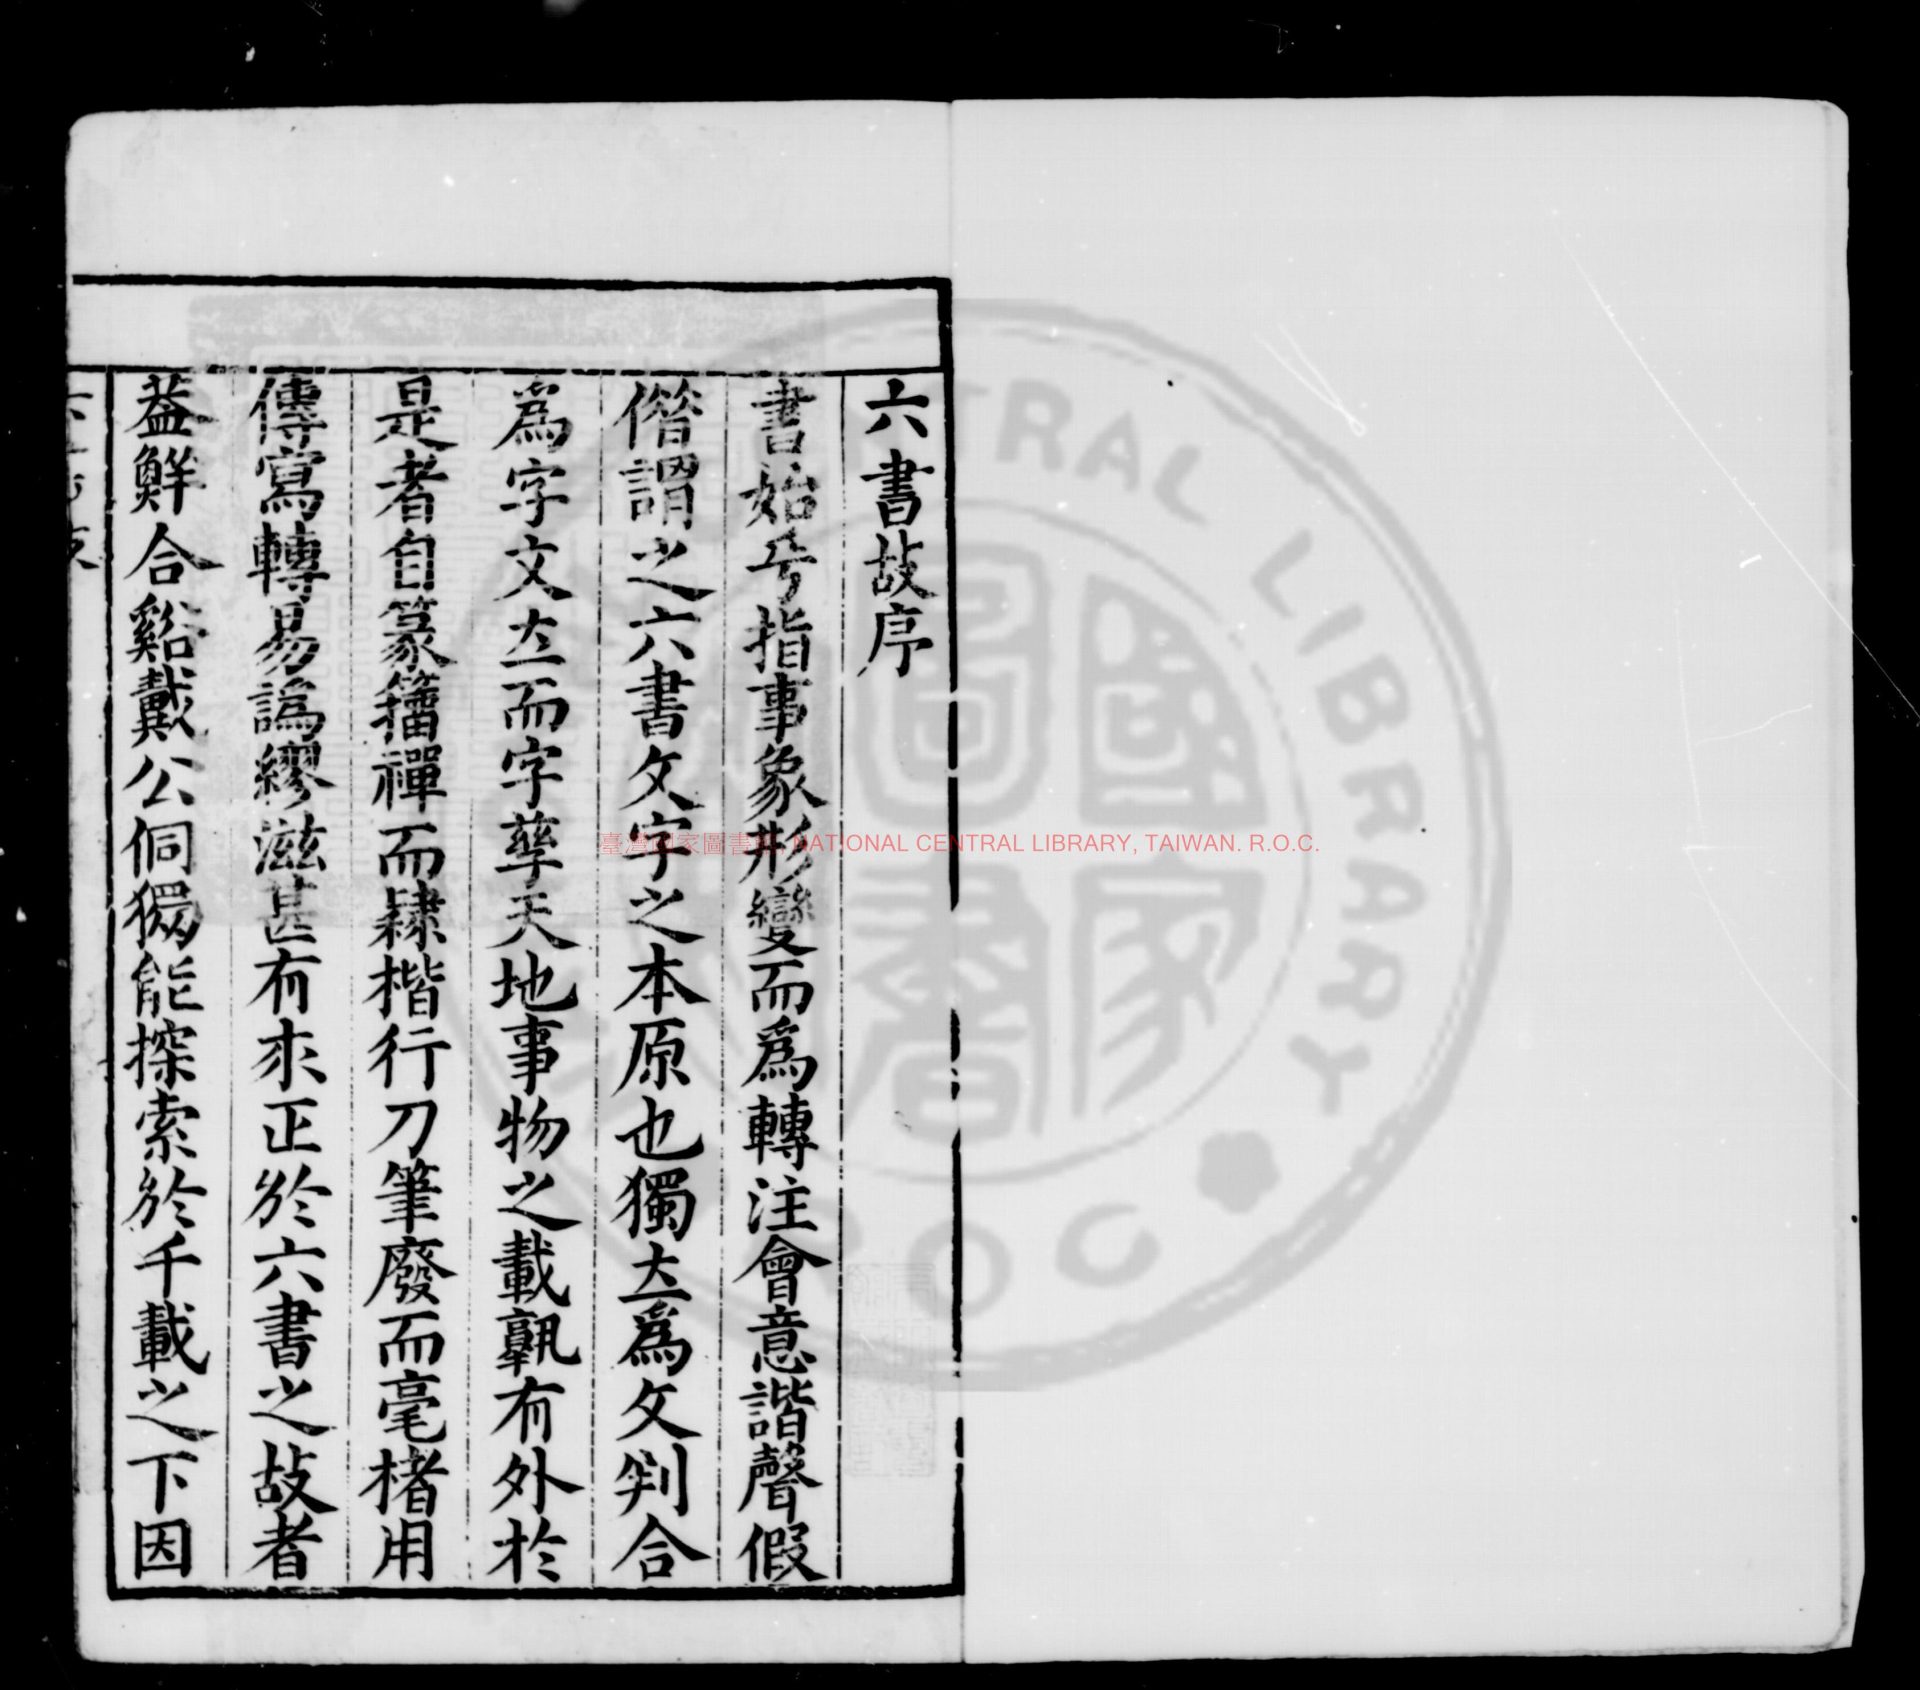 六書故序
書始兮指事象形變而爲轉注會意諧聲假
偺謂之六書文字之本原也獨立爲文判合
爲字文立而字孳天地事物之載孰有外於
是者自篆籀禪而隸楷行刀筆廢而毫楮用
傳寫轉易譌繆滋甚有求正於六書之故者
葢鮮合谿戴公侗獨能探索於千載之下因
臺灣國家圖書館, NATIONAL CENTRAL LIBRARY, TAIWAN. R.O.C.
國家圖書
CENTRAL LIBRARY